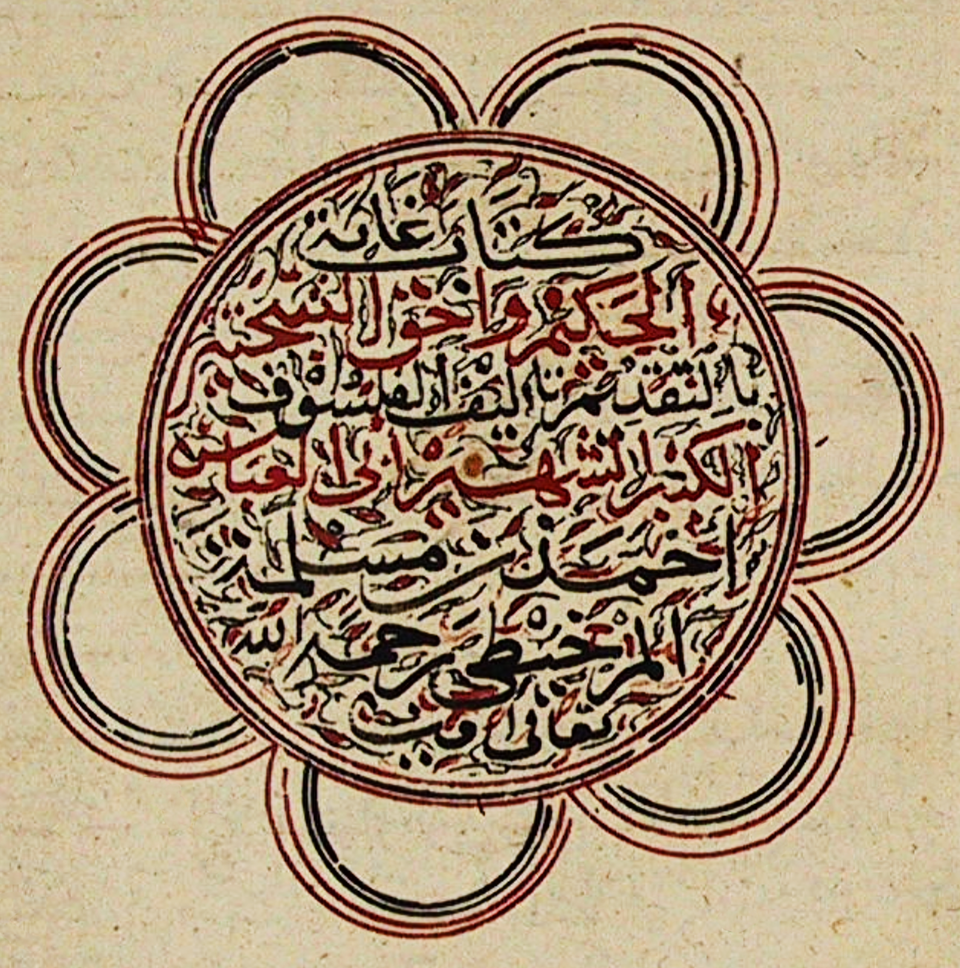 كتاب غاية
الحكيم واحق النتيجتين
بالتقديم تاليف الفيلسوف
الكبير الشهير ابي العباس
احمد بن مسلمة
رحمه الله
تعالى